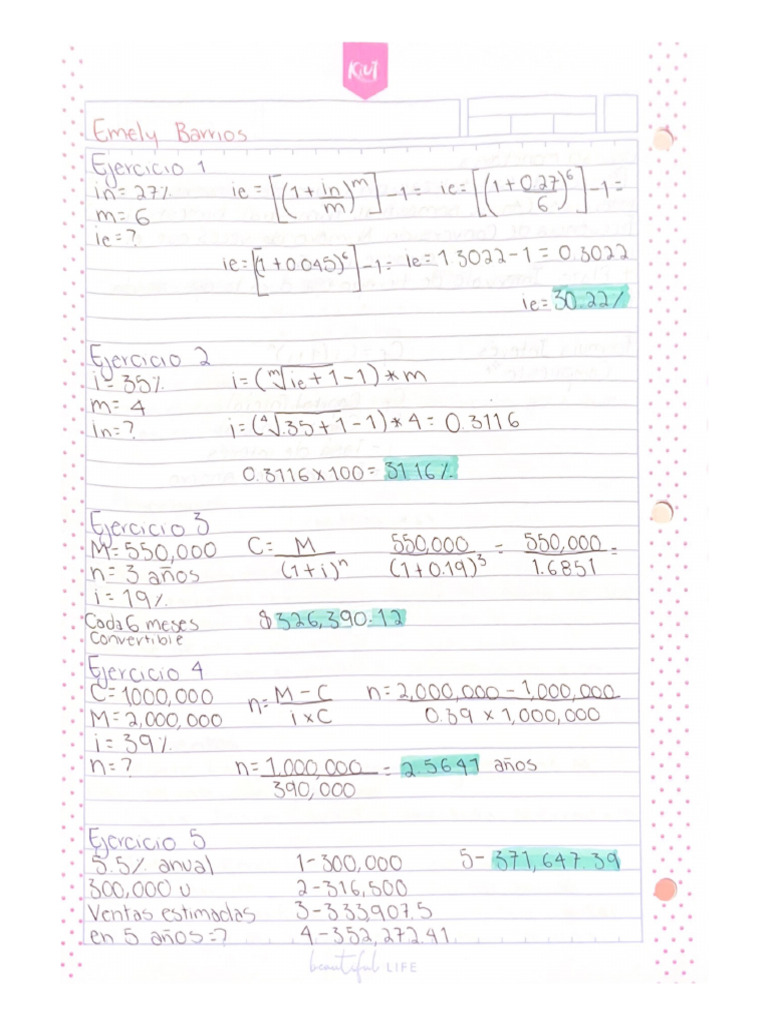 Kiut
Emely Barrios
Ejercicio 1
in= 27%   ie = [(1 + in/m)^m] - 1 = ie= [(1+0.27/6)^6] - 1 =
m= 6
ie=?
ie= [(1+0.045)^6] - 1 = ie= 1.3022 - 1 = 0.3022
ie= 30.22%
Ejercicio 2
i= 35%   i= (ᵐ√ie + 1 - 1) * m
m= 4
in=?   i= (⁴√.35+1 - 1) * 4 = 0.3116
0.3116 x 100 = 31.16%
Ejercicio 3
M= 550,000   C= M/(1+i)^n   550,000/(1+0.19)^3 = 550,000/1.6851 =
n= 3 años
i= 19%
Cada 6 meses   $326,390.12
Convertible
Ejercicio 4
C= 1000,000   n= M - C/i x C   n= 2,000,000 - 1,000,000/0.39 x 1,000,000
M= 2,000,000
i= 39%
n= ?   n= 1.000,000/390,000 = 2.5641 años
Ejercicio 5
5.5% anual   1-300,000   5- 371,647.39
300,000 u   2-316,500
Ventas estimadas   3-333,907.5
en 5 años=?   4-352,272.41
beautiful LIFE